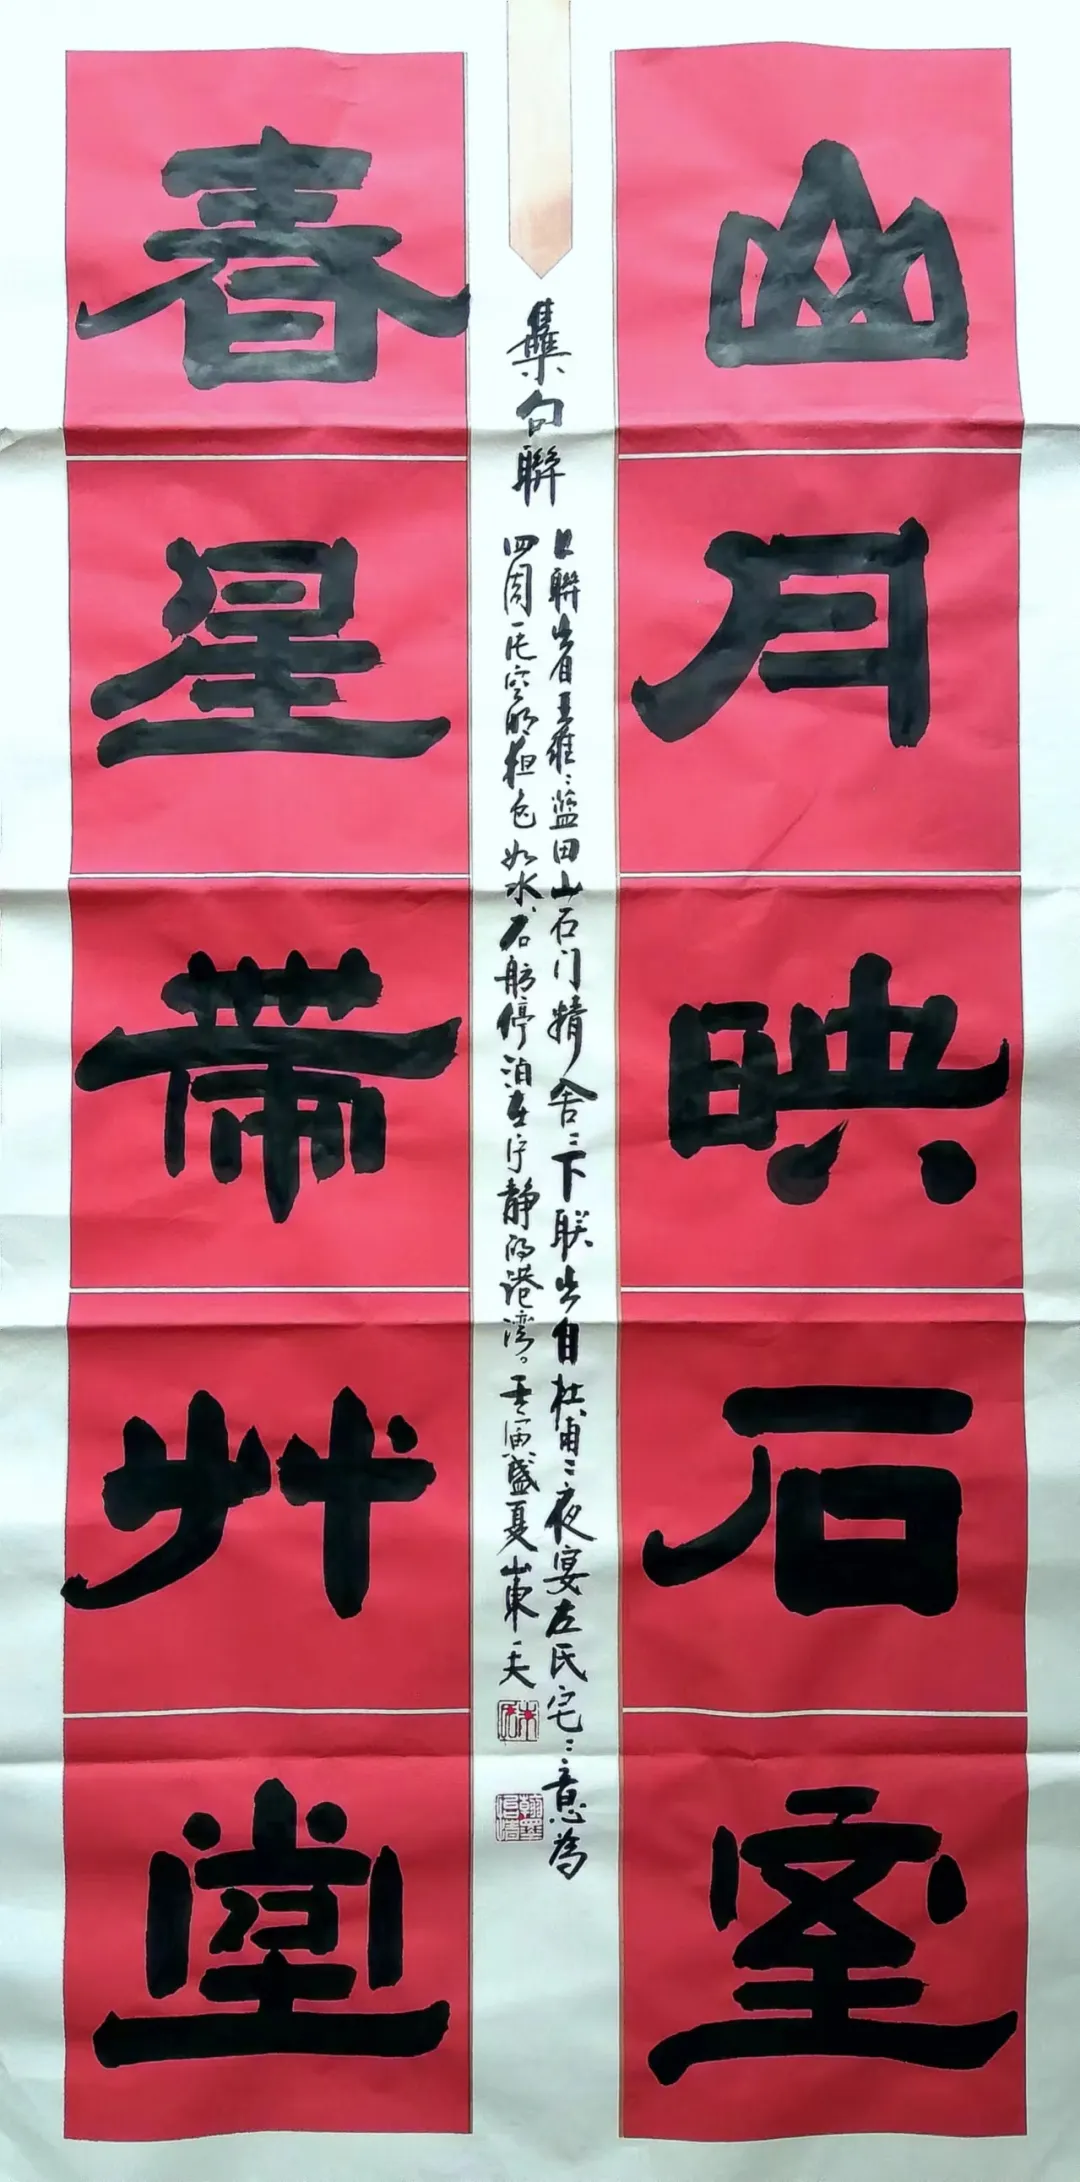 山月映石室
春星帶艸堂
集句聯
上聯出自王維:蓝田山石门精舍:下联出自杜甫:夜宴左氏宅:意為
四周一片空明夜色如水,石舫停泊在宁静的港湾。壬寅盛夏山東一夫